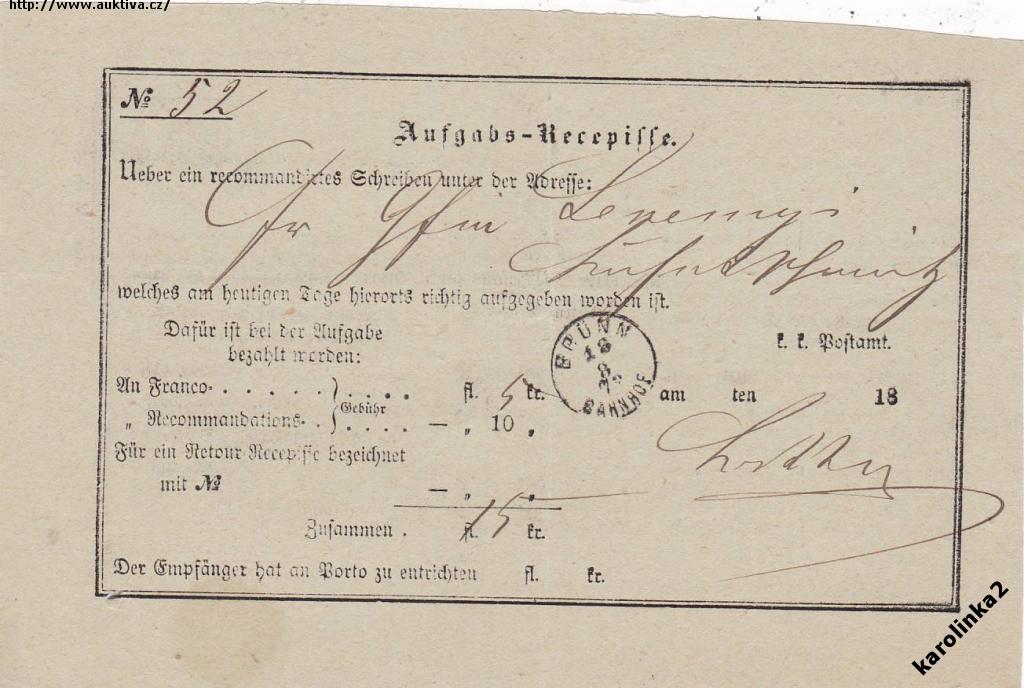 http://www.auktiva.cz/
№ 52
Aufgabs-Recepisse.
Ueber ein recommandirtes Schreiben unter der Adresse:
Fr
welches am heutigen Tage hierorts richtig aufgegeben worden ist.
Dafür ist bei der Aufgabe
bezahlt worden:
k. k. Postamt.
BRÜNN
18
8
BAHNHOF
An Franco . . . . . . } . . . . fl. 5 kr.
am ten 18
„ Recommandations- . . } Gebühr . . . . — „ 10 „
Für ein Retour-Recepisse bezeichnet
mit № — „ „
Zusammen . fl. 15 kr.
Der Empfänger hat an Porto zu entrichten fl. kr.
karolinka2